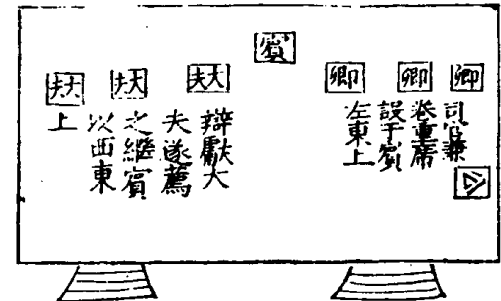 賓
卿
卿
卿
司宮兼
卷重席
設于賓
左東上
大夫
大夫
大夫
辯獻大
夫遂薦
之繼賓
以西東
上